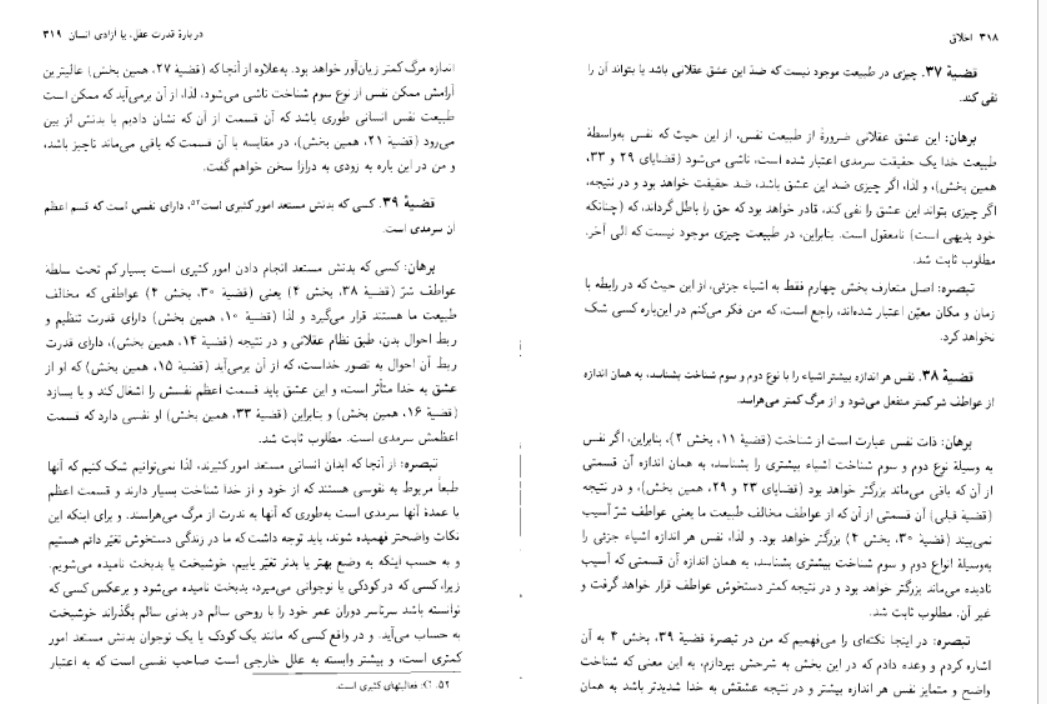 ۳۱۸ اخلاق
قضیهٔ ۳۷. چیزی در طبیعت موجود نیست که ضدّ این عشق عقلانی باشد یا بتواند آن را
نفی کند.
برهان: این عشق عقلانی ضرورةً از طبیعت نفس، از این حیث که نفس به‌واسطهٔ
طبیعت خدا یک حقیقت سرمدی اعتبار شده است، ناشی می‌شود (قضایای ۲۹ و ۳۳،
همین بخش)، و لذا، اگر چیزی ضد این عشق باشد، ضد حقیقت خواهد بود و در نتیجه،
اگر چیزی بتواند این عشق را نفی کند، قادر خواهد بود که حق را باطل گرداند، که (چنانکه
خود بدیهی است) نامعقول است. بنابراین، در طبیعت چیزی موجود نیست که الی آخر.
مطلوب ثابت شد.
تبصره: اصل متعارف بخش چهارم فقط به اشیاء جزئی، از این حیث که در رابطه با
زمان و مکان معیّن اعتبار شده‌اند، راجع است، که من فکر می‌کنم در این‌باره کسی شک
نخواهد کرد.
قضیهٔ ۳۸. نفس هر اندازه بیشتر اشیاء را با نوع دوم و سوم شناخت بشناسد، به همان اندازه
از عواطف شر کمتر منفعل می‌شود و از مرگ کمتر می‌هراسد.
برهان: ذات نفس عبارت است از شناخت (قضیهٔ ۱۱، بخش ۲)، بنابراین، اگر نفس
به وسیلهٔ نوع دوم و سوم شناخت اشیاء بیشتری را بشناسد، به همان اندازه آن قسمتی
از آن که باقی می‌ماند بزرگتر خواهد بود (قضایای ۲۳ و ۲۹، همین بخش)، و در نتیجه
(قضیهٔ قبلی) آن قسمتی از آن که از عواطف مخالف طبیعت ما یعنی عواطف شرّ آسیب
نمی‌بیند (قضیهٔ ۳۰، بخش ۴) بزرگتر خواهد بود. و لذا، نفس هر اندازه اشیاء جزئی را
به‌وسیلهٔ انواع دوم و سوم شناخت بیشتری بشناسد، به همان اندازه آن قسمتی که آسیب
نادیده می‌ماند بزرگتر خواهد بود و در نتیجه کمتر دستخوش عواطف قرار خواهد گرفت و
غیر آن. مطلوب ثابت شد.
تبصره: در اینجا نکته‌ای را می‌فهمیم که من در تبصرهٔ قضیهٔ ۳۹، بخش ۴ به آن
اشاره کردم و وعده دادم که در این بخش به شرحش بپردازم، به این معنی که شناخت
واضح و متمایز نفس هر اندازه بیشتر و در نتیجه عشقش به خدا شدیدتر باشد به همان
دربارهٔ قدرت عقل، یا آزادی انسان ۳۱۹
اندازه مرگ کمتر زیان‌آور خواهد بود. به‌علاوه از آنجا که (قضیهٔ ۲۷، همین بخش) عالیترین
آرامش ممکن نفس از نوع سوم شناخت ناشی می‌شود، لذا، از آن برمی‌آید که ممکن است
طبیعت نفس انسانی طوری باشد که آن قسمت از آن که نشان دادیم با بدنش از بین
می‌رود (قضیهٔ ۲۱، همین بخش)، در مقایسه با آن قسمت که باقی می‌ماند ناچیز باشد،
و من در این باره به زودی به درازا سخن خواهم گفت.
قضیهٔ ۳۹. کسی که بدنش مستعد امور کثیری است⁵²، دارای نفسی است که قسم اعظم
آن سرمدی است.
برهان: کسی که بدنش مستعد انجام دادن امور کثیری است بسیار کم تحت سلطهٔ
عواطف شرّ (قضیهٔ ۳۸، بخش ۴) یعنی (قضیهٔ ۳۰، بخش ۴) عواطفی که مخالف
طبیعت ما هستند قرار می‌گیرد و لذا (قضیهٔ ۱۰، همین بخش) دارای قدرت تنظیم و
ربط احوال بدن، طبق نظام عقلانی و در نتیجه (قضیهٔ ۱۴، همین بخش)، دارای قدرت
ربط آن احوال به تصور خداست، که از آن برمی‌آید (قضیهٔ ۱۵، همین بخش) که او از
عشق به خدا متأثر است، و این عشق باید قسمت اعظم نفسش را اشغال کند و یا بسازد
(قضیهٔ ۱۶، همین بخش) و بنابراین (قضیهٔ ۳۳، همین بخش) او نفسی دارد که قسمت
اعظمش سرمدی است. مطلوب ثابت شد.
تبصره: از آنجا که ابدان انسانی مستعد امور کثیرند، لذا نمی‌توانیم شک کنیم که آنها
طبعاً مربوط به نفوسی هستند که از خود و از خدا شناخت بسیار دارند و قسمت اعظم
یا عمدهٔ آنها سرمدی است به‌طوری که آنها به ندرت از مرگ می‌هراسند. و برای اینکه این
نکات واضحتر فهمیده شوند، باید توجه داشت که ما در زندگی دستخوش تغیّر دائم هستیم
و به حسب اینکه به وضع بهتر یا بدتر تغیّر یابیم، خوشبخت یا بدبخت نامیده می‌شویم.
زیرا، کسی که در کودکی یا نوجوانی می‌میرد، بدبخت نامیده می‌شود و برعکس کسی که
توانسته باشد سرتاسر دوران عمر خود را با روحی سالم در بدنی سالم بگذراند خوشبخت
به حساب می‌آید. و در واقع کسی که مانند یک کودک یا یک نوجوان بدنش مستعد امور
کمتری است، و بیشتر وابسته به علل خارجی است صاحب نفسی است که به اعتبار
۵۲. C: فعالیتهای کثیری است.